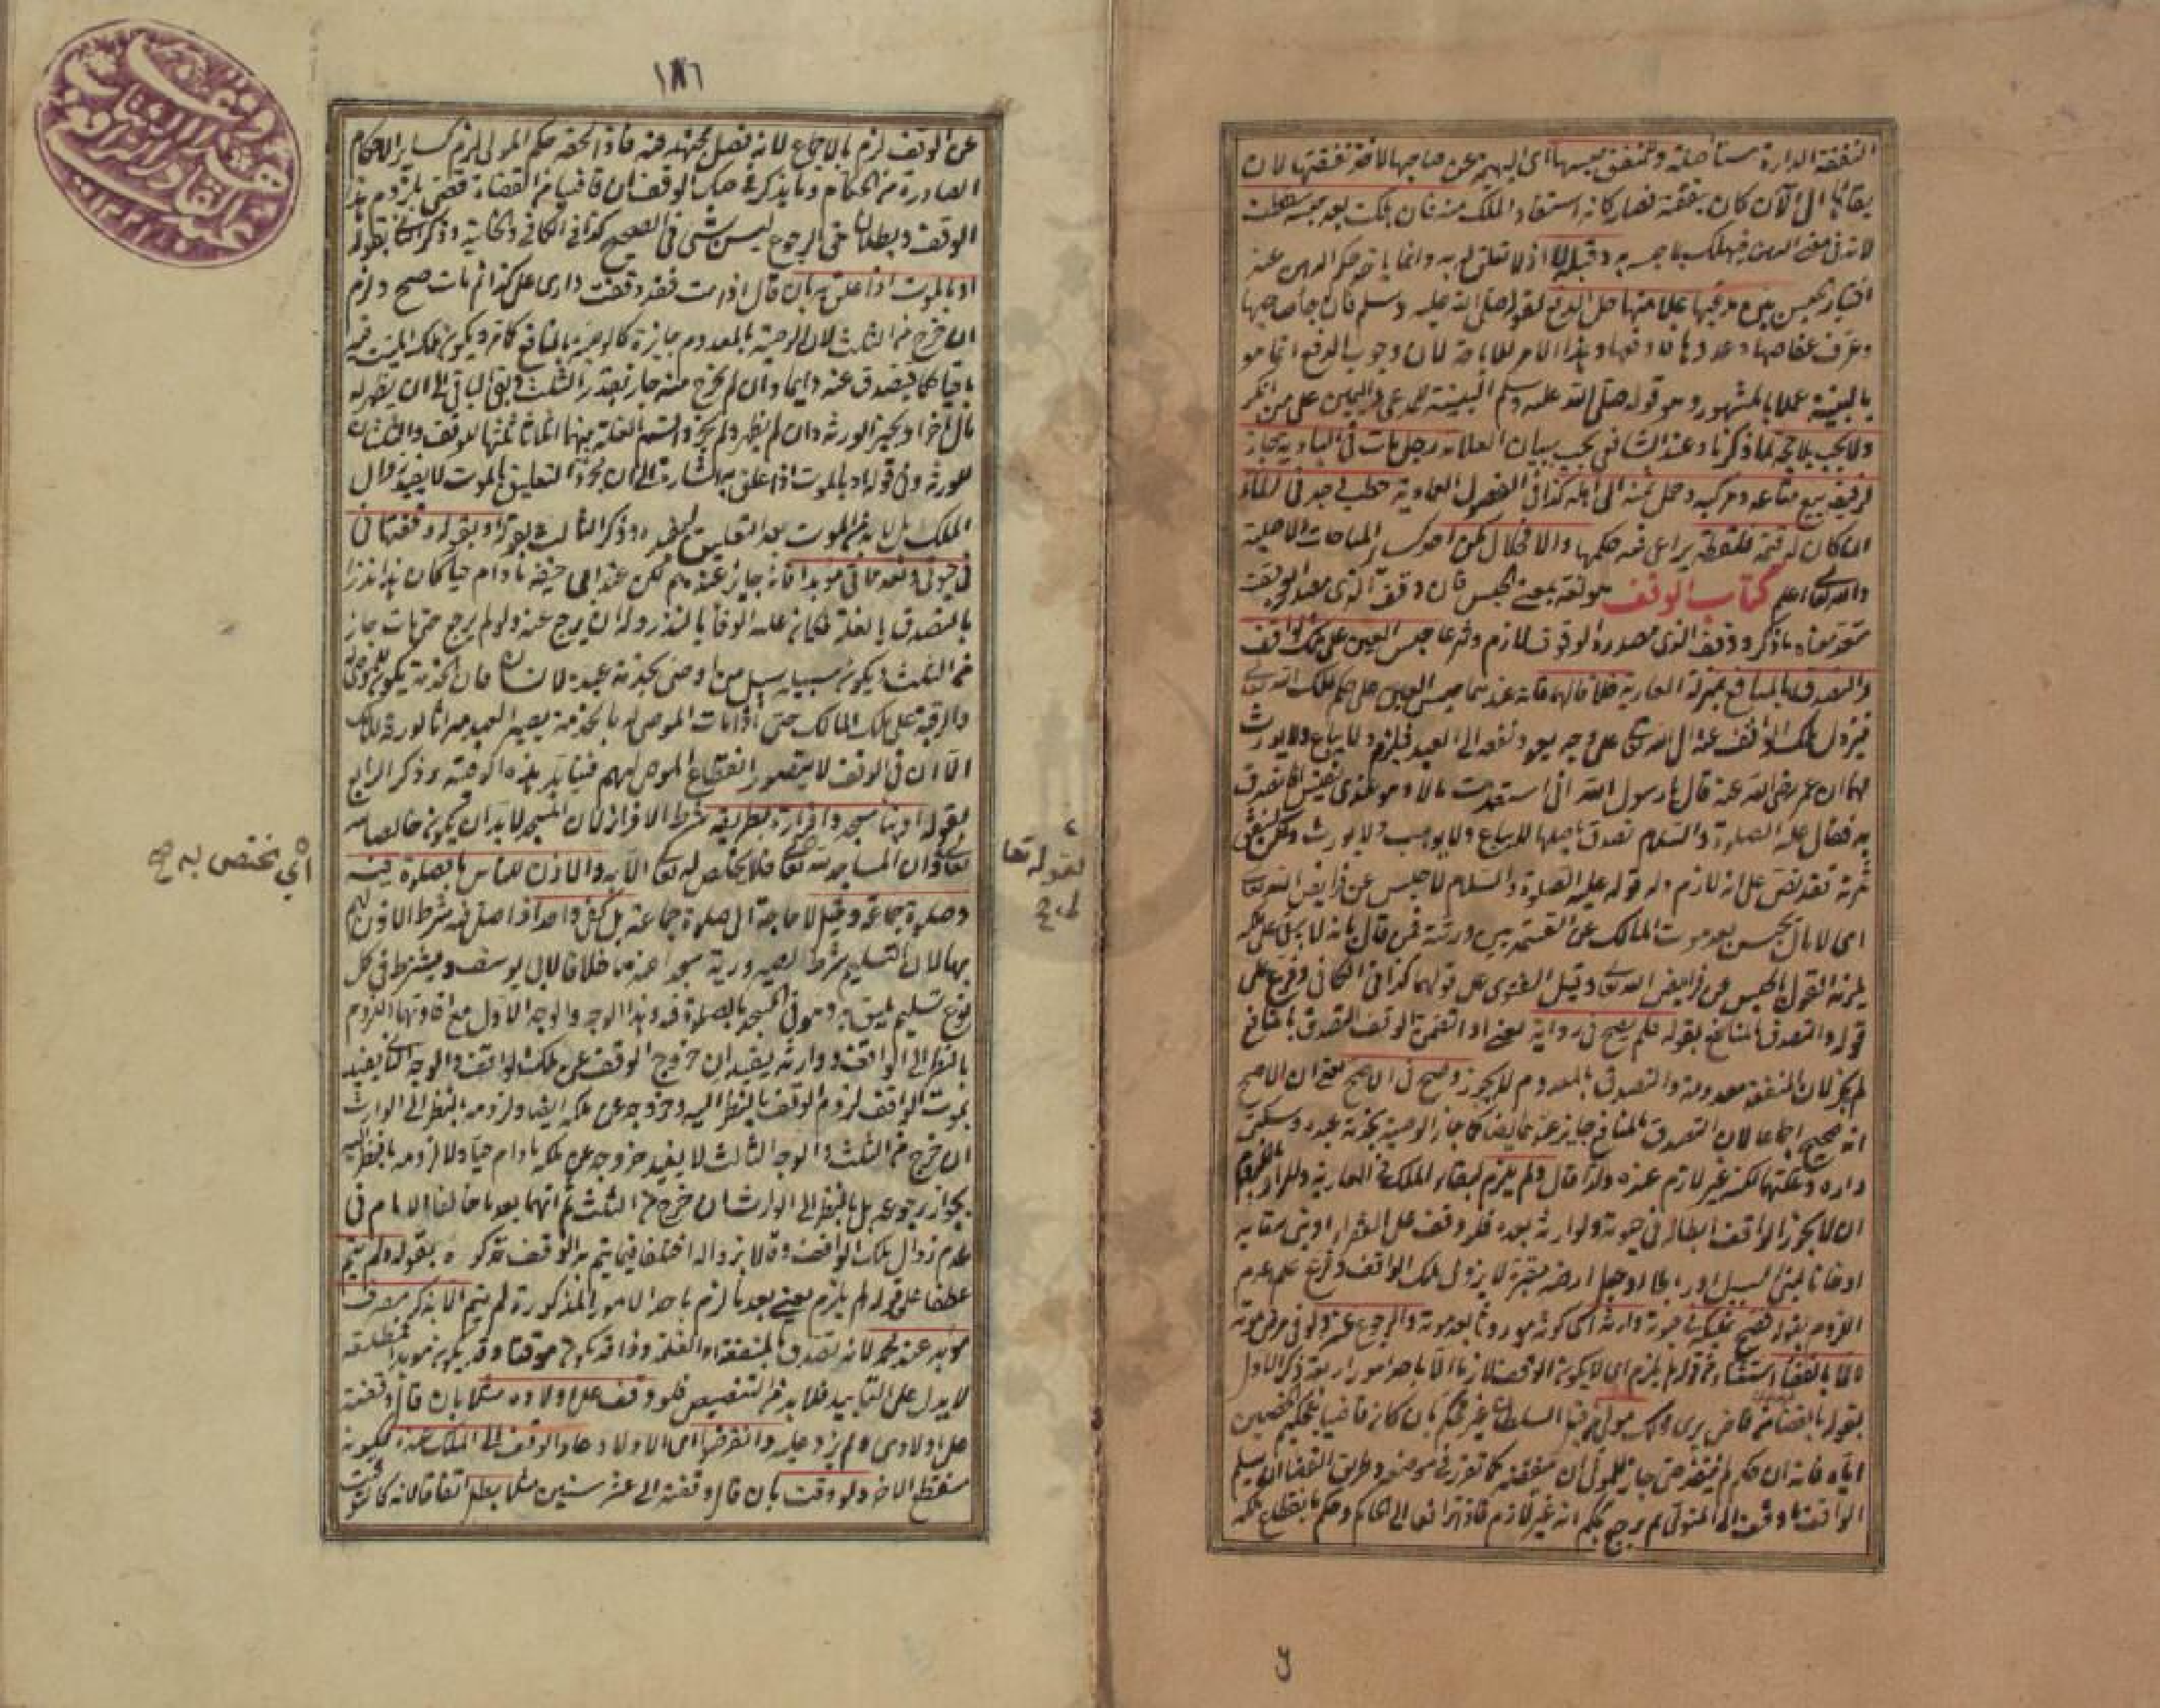 النفقة الدارة مستأصلة وللمنفق حبسها اى البهيمة عن صاحبها لاخذ نفقتها لان
بقائها الى الآن كان بنفقته فصار كانه استفاد الملك منه فان هلكت بعد حبسه سقطت
لانه فى معنى الرهن فيهلك بما حبس به وقبله لا اذ لا تعلق له به وانما يأخذ حكم الرهن عند
اختيار الحبس بين مدعيها علامتها حل الدفع لقوله صلى الله عليه وسلم فان جاء صاحبها
وعرف عفاصها وعددها فادفعها وهذا الامر للاباحة لان وجوب الدفع انما هو
بالبينة عملا بالمشهور وهو قوله صلى الله عليه وسلم البينة للمدعى واليمين على من انكر
ولا يجب بلا حجة لما ذكرنا وعند الشافعى يجب ببيان العلامة رجل مات فى البادية جاز
لرفيقه بيع متاعه ومركبه وحمل ثمنه الى اهله كذا فى الفصول العمادية حطب وجد فى الماء
ان كان له قيمة فلقطة يراعى فيه حكمها والا فحلال لمن اخذه كسائر المباحات الاصلية
والله تعالى اعلم كتاب الوقف هو لغة بمعنى الحبس فان وقف الذى مصدره الوقف
متعد معناه ما ذكر ووقف الذى مصدره الوقوف لازم وشرعا حبس العين على ملك الواقف
والتصدق بالمنافع بمنزلة العارية خلافا لهما فانه عندهما حبس العين على حكم ملك الله تعالى
فيزول ملك الواقف عنه الى الله تعالى على وجه يعود نفعه الى العبيد فيلزم ولا يباع ولا يورث
لهما ان عمر رضى الله عنه قال يا رسول الله انى استفدت مالا وهو عندى نفيس افاتصدق
به فقال عليه الصلوة والسلام تصدق باصلها لا يباع ولا يوهب ولا يورث ولكن لينفق
ثمرته فقد نص على انه لازم وله قوله عليه الصلوة والسلام لا حبس عن فرايض الله تعالى
اى لا مال يحبس بعد موت المالك عن القسمة بين ورثته فمن قال بانه لا يبقى على ملكه
يلزمه القول بالحبس عن فرايض الله تعالى وقيل الفتوى على قولهما كذا فى الكافى وفرع على
قوله والتصدق بالمنافع بقوله فلم يصح فى رواية يعنى اذا تضمن الوقف التصدق بالمنافع
لم يجز لان المنفعة معدومة والتصدق بالمعدوم لا يجوز وصح فى الاصح يعنى ان الاصح
انه صحيح اجماعا لان التصدق بالمنافع جايز عنده ايضا كما جاز الوصية بخدمة عبده وسكنى
داره وغلتهما لكنه غير لازم عنده ولذا قال ولم يلزم لبقاء الملك فى العارية والمراد بالملزوم
ان لا يجوز للواقف ابطاله فى حيوته ولوارثه بعده فلو وقف على الفقراء او بنى سقاية
او خانا لبنى السبيل او رباطا او جعل ارضه مقبرة لا يزول ملك الواقف وفرع على عدم
اللزوم بقوله فصح تمليكه فى حيوته وارثه اى كونه موروثا بعد موته والرجوع عنه ولو فى مرض موته
الا بالقضاء استثناء من قوله لم يلزم اى لا يكون الوقف لازما الا باحد امور اربعة ذكر الاول
بقوله بالقضاء من قاض يرى ذلك مولى من قبل السلطان غير محكم بان كان قاضيا بتحكيم الخصمين
اياه فانه ان حكم لم ينفذ حتى جاز للمولى ان ينقضه كما تقرر فى موضعه وطريق القضاء ان يسلم
الواقف ما وقفه الى المتولى ثم يرجع بحكم انه غير لازم فاذا ترافعا الى الحاكم وحكم بانقطاع ملكه
١٨٦
عن الوقف لزم بالاجماع لانه فصل مجتهد فيه فاذا لحقه حكم المولى لزم كساير الاحكام
الصادرة من الحكام وما يذكر فى صك الوقف ان قاضيا من القضاة قضى بلزوم هذا
الوقف وبطلان حق الرجوع ليس بشئ فى الصحيح كذا فى الكافى والخانية وذكر الثانى بقوله
او بالموت اذا علق به بان قال اذا مت فقد وقفت دارى على كذا ثم مات صح ولزم
ان خرج من الثلث لان الوصية بالمعدوم جايزة كالوصية بالمنافع كما مر ويكون ملك الميت فيه
باقيا حكما فيتصدق عنه دايما وان لم يخرج منه جاز بقدر الثلث ويبقى الباقى الى ان يظهر له
مال آخر او يجيز الورثة وان لم يظهر ولم يجيزوا تقسم الغلة بينهما اثلاثا ثلثها للوقف والثلثان
للورثة وفى قوله او بالموت اذا علق به اشارة الى ان مجرد التعليق بالموت لا يفيد زوال
الملك بل لا بد من الموت بعد التعليق ليفيده وذكر الثالث بقوله او بقوله وقفتها فى
فى حيوتى وبعد مماتى مؤبدا فانه جايز عندهم لكن عند ابى حنيفة ما دام حيا كان هذا نذرا
بالتصدق بالغلة فكان عليه الوفاء بالنذر وله ان يرجع عنه ولو لم يرجع حتى مات جاز
من الثلث ويكون سبيله سبيل من اوصى بخدمة عبده لانسان فان الخدمة تكون للموصى له
والرقبة على ملك المالك حتى اذا مات الموصى له بالخدمة يصير العبد ميراثا لورثة المالك
الا ان فى الوقف لا يتصور انقطاع الموصى لهم فيتأبد هذه الوصية وذكر الرابع
بقوله او بناء مسجد وافرازه بطريقه شرط الافراز لان المسجد لا بد ان يكون خالصا لله
تعالى وان المساجد لله تعالى فلا يخلص له تعالى الا به والاذن للناس بالصلوة فيه
وصلوة جماعة وقيل لا حاجة الى صلوة جماعة بل يكفى واحد اذا صلى فيه شرط الاذن لهم
بها لان التسليم شرط لصيرورته مسجدا عندهما خلافا لابى يوسف ويشترط فى كل
نوع تسليم يليق به وهو فى المسجد بالصلوة فيه وهذا الوجه والوجه الاول مع افادتهما اللزوم
بالنظر الى الواقف ووارثه يفيدان خروج الوقف عن ملك الواقف والوجه الثانى يفيد
بموت الواقف لزوم الوقف بالنظر اليه وخروجه عن ملكه ايضا ولزومه بالنظر الى الوارث
ان خرج من الثلث والوجه الثالث لا يفيد خروجه عن ملكه ما دام حيا ولا لزومه بالنظر اليه
بجواز رجوعه بل بالنظر الى الوارث ان خرج من الثلث ثم انهما بعد ما خالفا الامام فى
عدم زوال ملك الواقف وقالا بزواله اختلفا فيما يتم به الوقف فذكره بقوله ولم يتم
عطفا على قوله لم يلزم يعنى بعد ما لزم باحد الامور المذكورة لم يتم الا بذكر مصرف
مؤبد عند محمد لانه تصدق بالمنفعة او الغلة وذا قد يكون موقتا وقد يكون مؤبدا فمطلقه
لا يدل على التأبيد فلا بد من التنصيص فلو وقف على اولاده مثلا بان قال وقفته
على اولادى ولم يزد عليه وانقرضوا اى الاولاد عاد الوقف الى الملك عنده لكونه
منقطع الآخر ولو وقت بان قال وقفته الى عشر سنين مثلا بطل اتفاقا لانه كالتوقيت
لقوله تعالى
اى يختص به صح